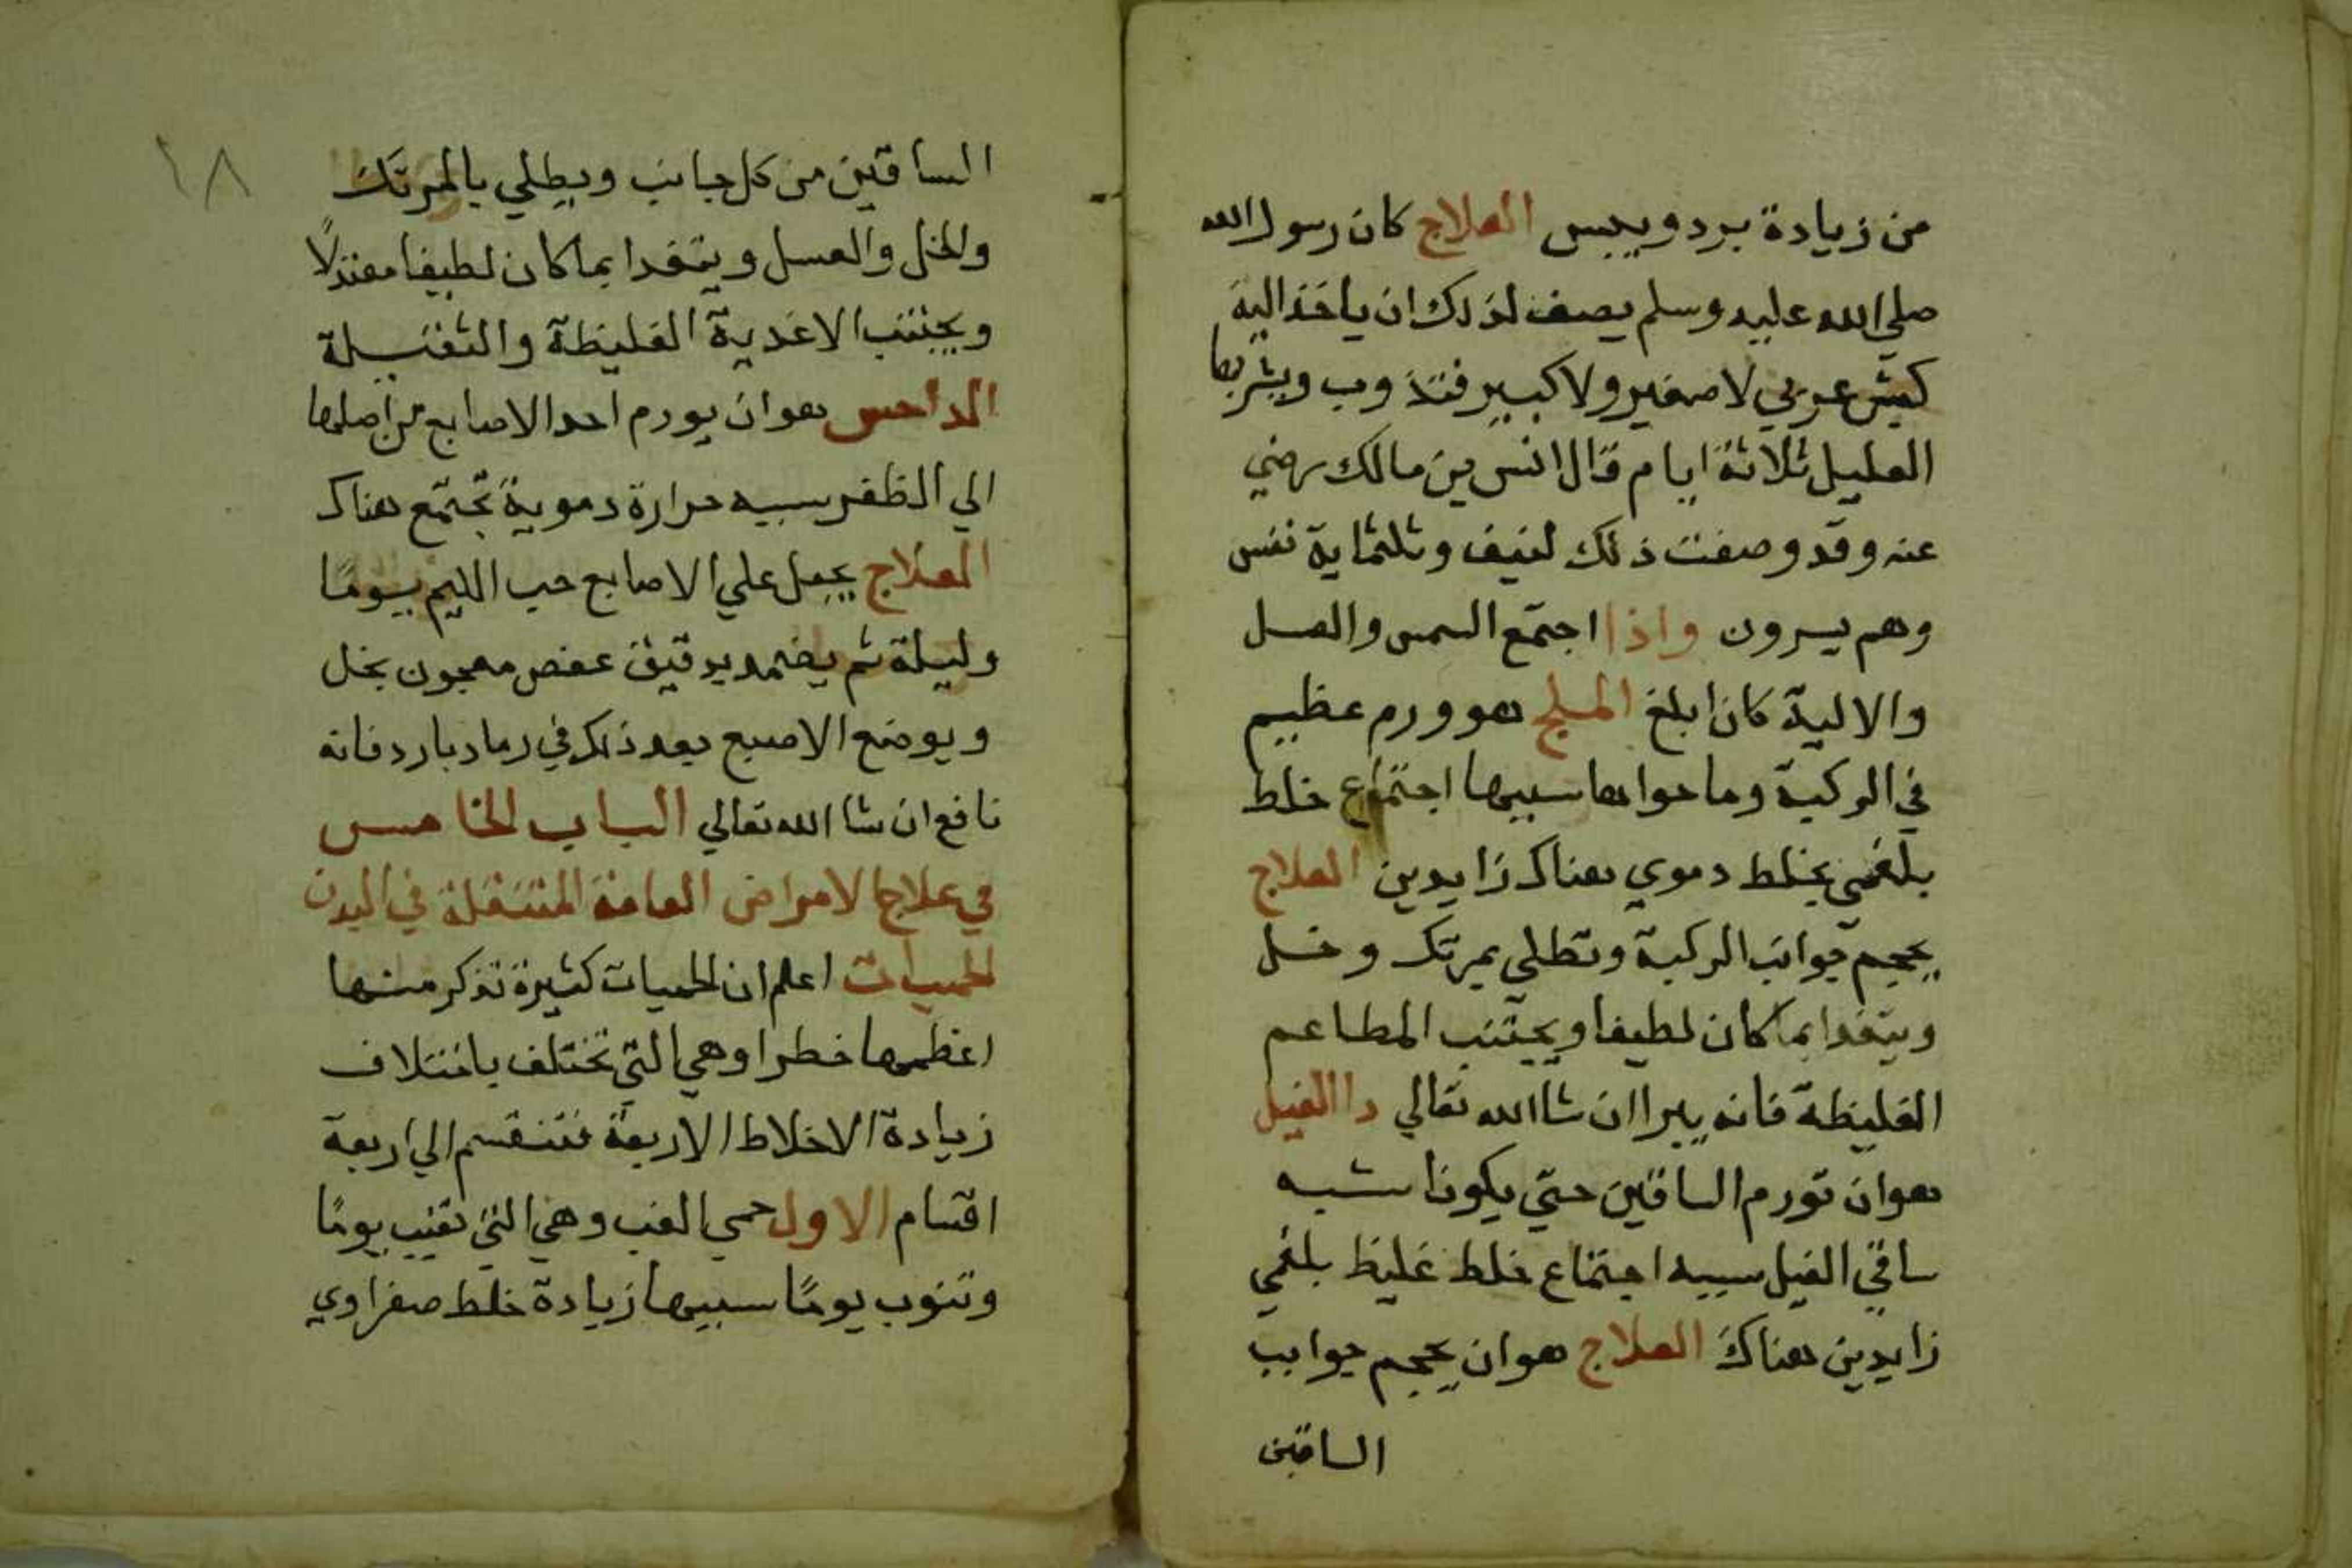 من زيادة برد ويبس العلاج كان رسول الله
صلي الله عليه وسلم يصف لذلك ان ياخذ الية
كبش عربي لا صغير ولا كبير فتذوب ويشربها
العليل ثلاثة ايام قال انس بن مالك رضي
عنه وقد وصفت ذلك لنيف وثلثماية نفس
وهم يبرون واذا اجتمع السمن والعسل
والالية كان ابلغ الملح هو ورم عظيم
في الركبة وما حواها سببها اجتماع خلط
بلغمي بخلط دموي هناك زايدين العلاج
يحجم جوانب الركبة وتطلي بمرتك وخل
ويتغدا بما كان لطيفا ويجتنب المطاعم
الغليظة فانه يبرا ان شا الله تعالي دا الفيل
هو ان تورم الساقين حتي يكونا شبه
ساقي الفيل سببه اجتماع خلط غليظ بلغمي
زايدين هناك العلاج هو ان يحجم جوانب
الساقين
١٨
الساقين من كل جانب ويطلي بالمرتك
والخل والعسل ويتغدا بما كان لطيفا معتدلًا
ويجتنب الاغدية الغليظة والثقيلة
الداحس هو ان يورم احد الاصابع من اصلها
الي الظفر سببه حرارة دموية تجتمع هناك
العلاج يجعل علي الاصابع حب الليم يومًا
وليلة ثم يضمد بدقيق عفص معجون بخل
ويوضع الاصبع بعد ذلك في رماد بارد فانه
نافع ان شا الله تعالي الباب الخامس
في علاج الامراض العامة المتنقلة في البدن
الحميات اعلم ان الحميات كثيرة نذكر منها
اعظمها خطرا وهي التي تختلف باختلاف
زيادة الاخلاط الاربعة فتنقسم الي اربعة
اقسام الاول حمي الغب وهي التي تغيب يومًا
وتنوب يومًا سببها زيادة خلط صفراوي